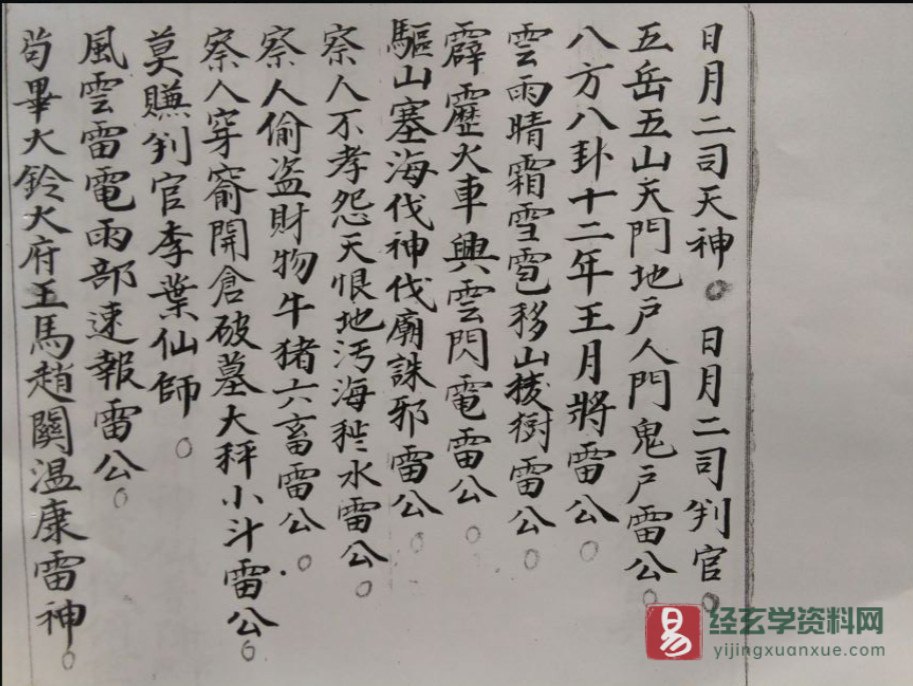 日月二司天神。日月二司判官。
五岳五山天門地戸人門鬼戸雷公。
八方八卦十二年王月將雷公。
雲雨晴霜雪雹移山拔樹雷公。
霹靂火車興雲閃電雷公。
驅山塞海伐神伐廟誅邪雷公。
察人不孝怨天恨地汚海水雷公。
察人偷盗財物牛猪六畜雷公。
察人穿窬開倉破墓大秤小斗雷公。
莫賺判官李葉仙師。
風雲雷電雨部速報雷公。
苟畢火鈴大府王馬趙關温康雷神。
易
经玄学资料网
yijingxuanxue.com